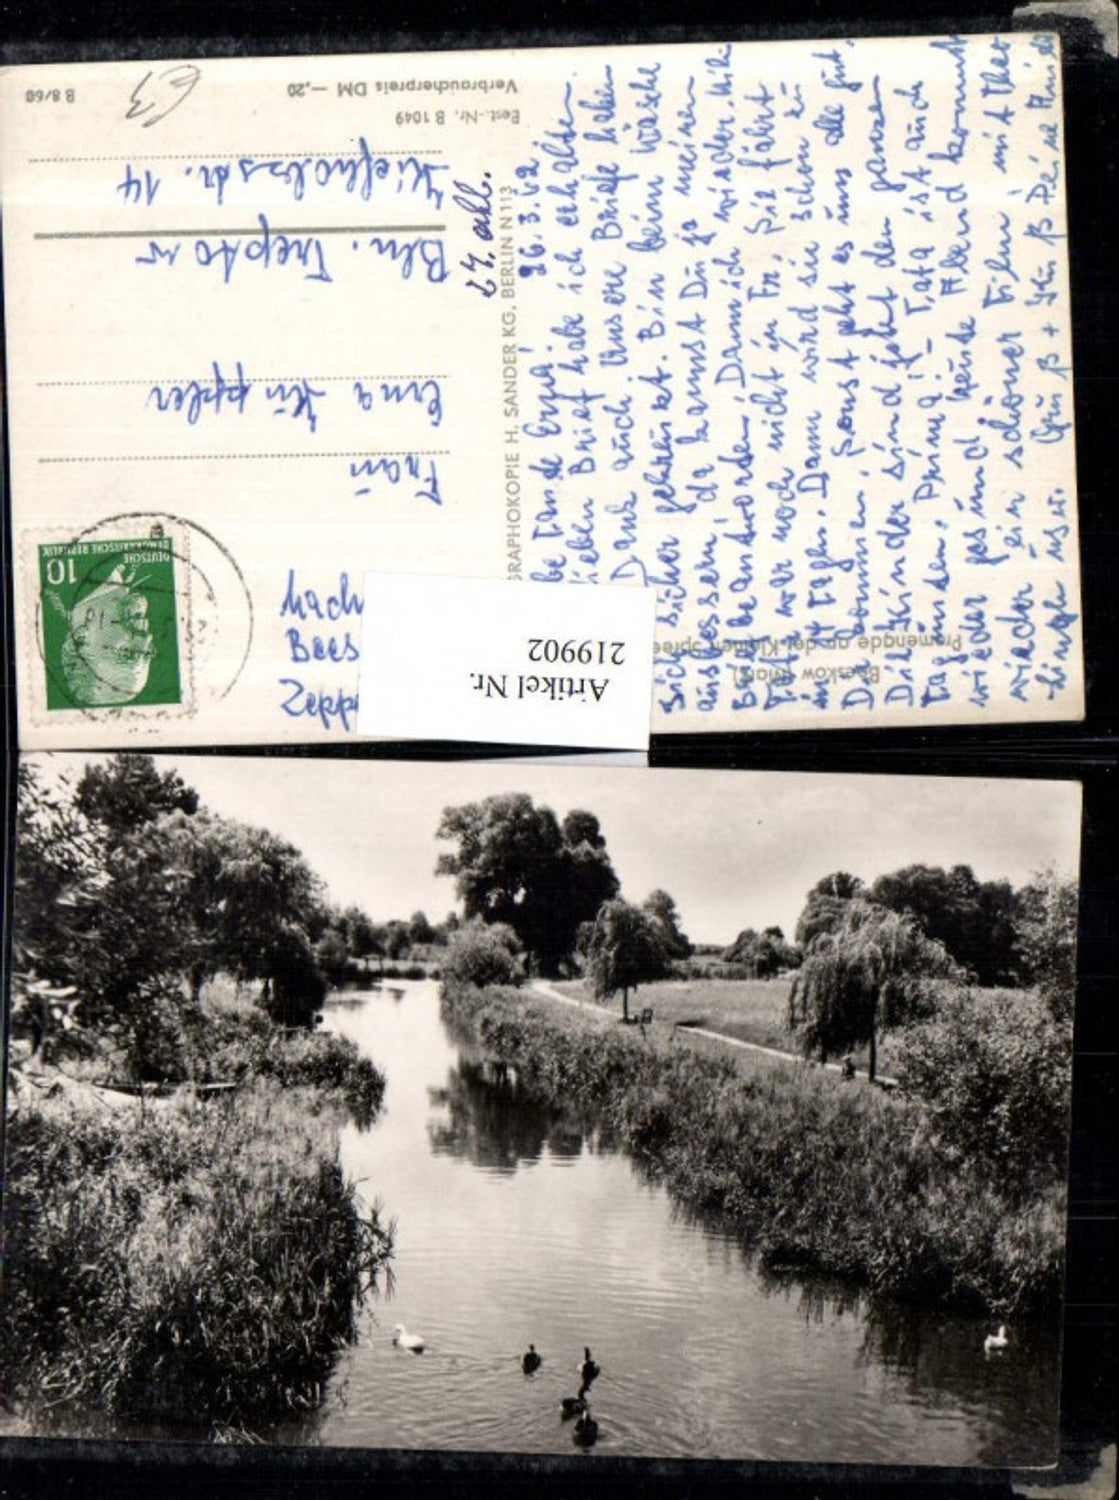 Beeskow (Mark)
Promenade an der Kleinen Spree
26.3.62
be Tante Erna!
ieben Brief habe ich erhalten.
Dank auch. Unsere Briefe haben
sich sicher gekreuzt. Bin beim Wäsche
ausbessern, da kannst Du ja meinen
Brief beantworten! Dann ich wieder.
war noch nicht in Fr. Sie fährt
in Tagen. Dann wird sie schon zu
Dir kommen! Sonst geht es uns alle gut.
Die Kinder sind jetzt den ganzen
Tag draußen. Prima! Tata ist auch
wieder gesund. Heute Abend kommt
wieder ein schöner Film mit Theo
Lingen usw. Gruß + Kuß Deine
GRAPHOKOPIE H. SANDER KG, BERLIN N 113
Best.-Nr. B 1049
Verbraucherpreis DM —,20
B 8/60
DEUTSCHE
DEMOKRATISCHE REPUBLIK
10
Frau
Erna
Bln. Treptow
Kiefholzstr. 14
Artikel Nr.
219902